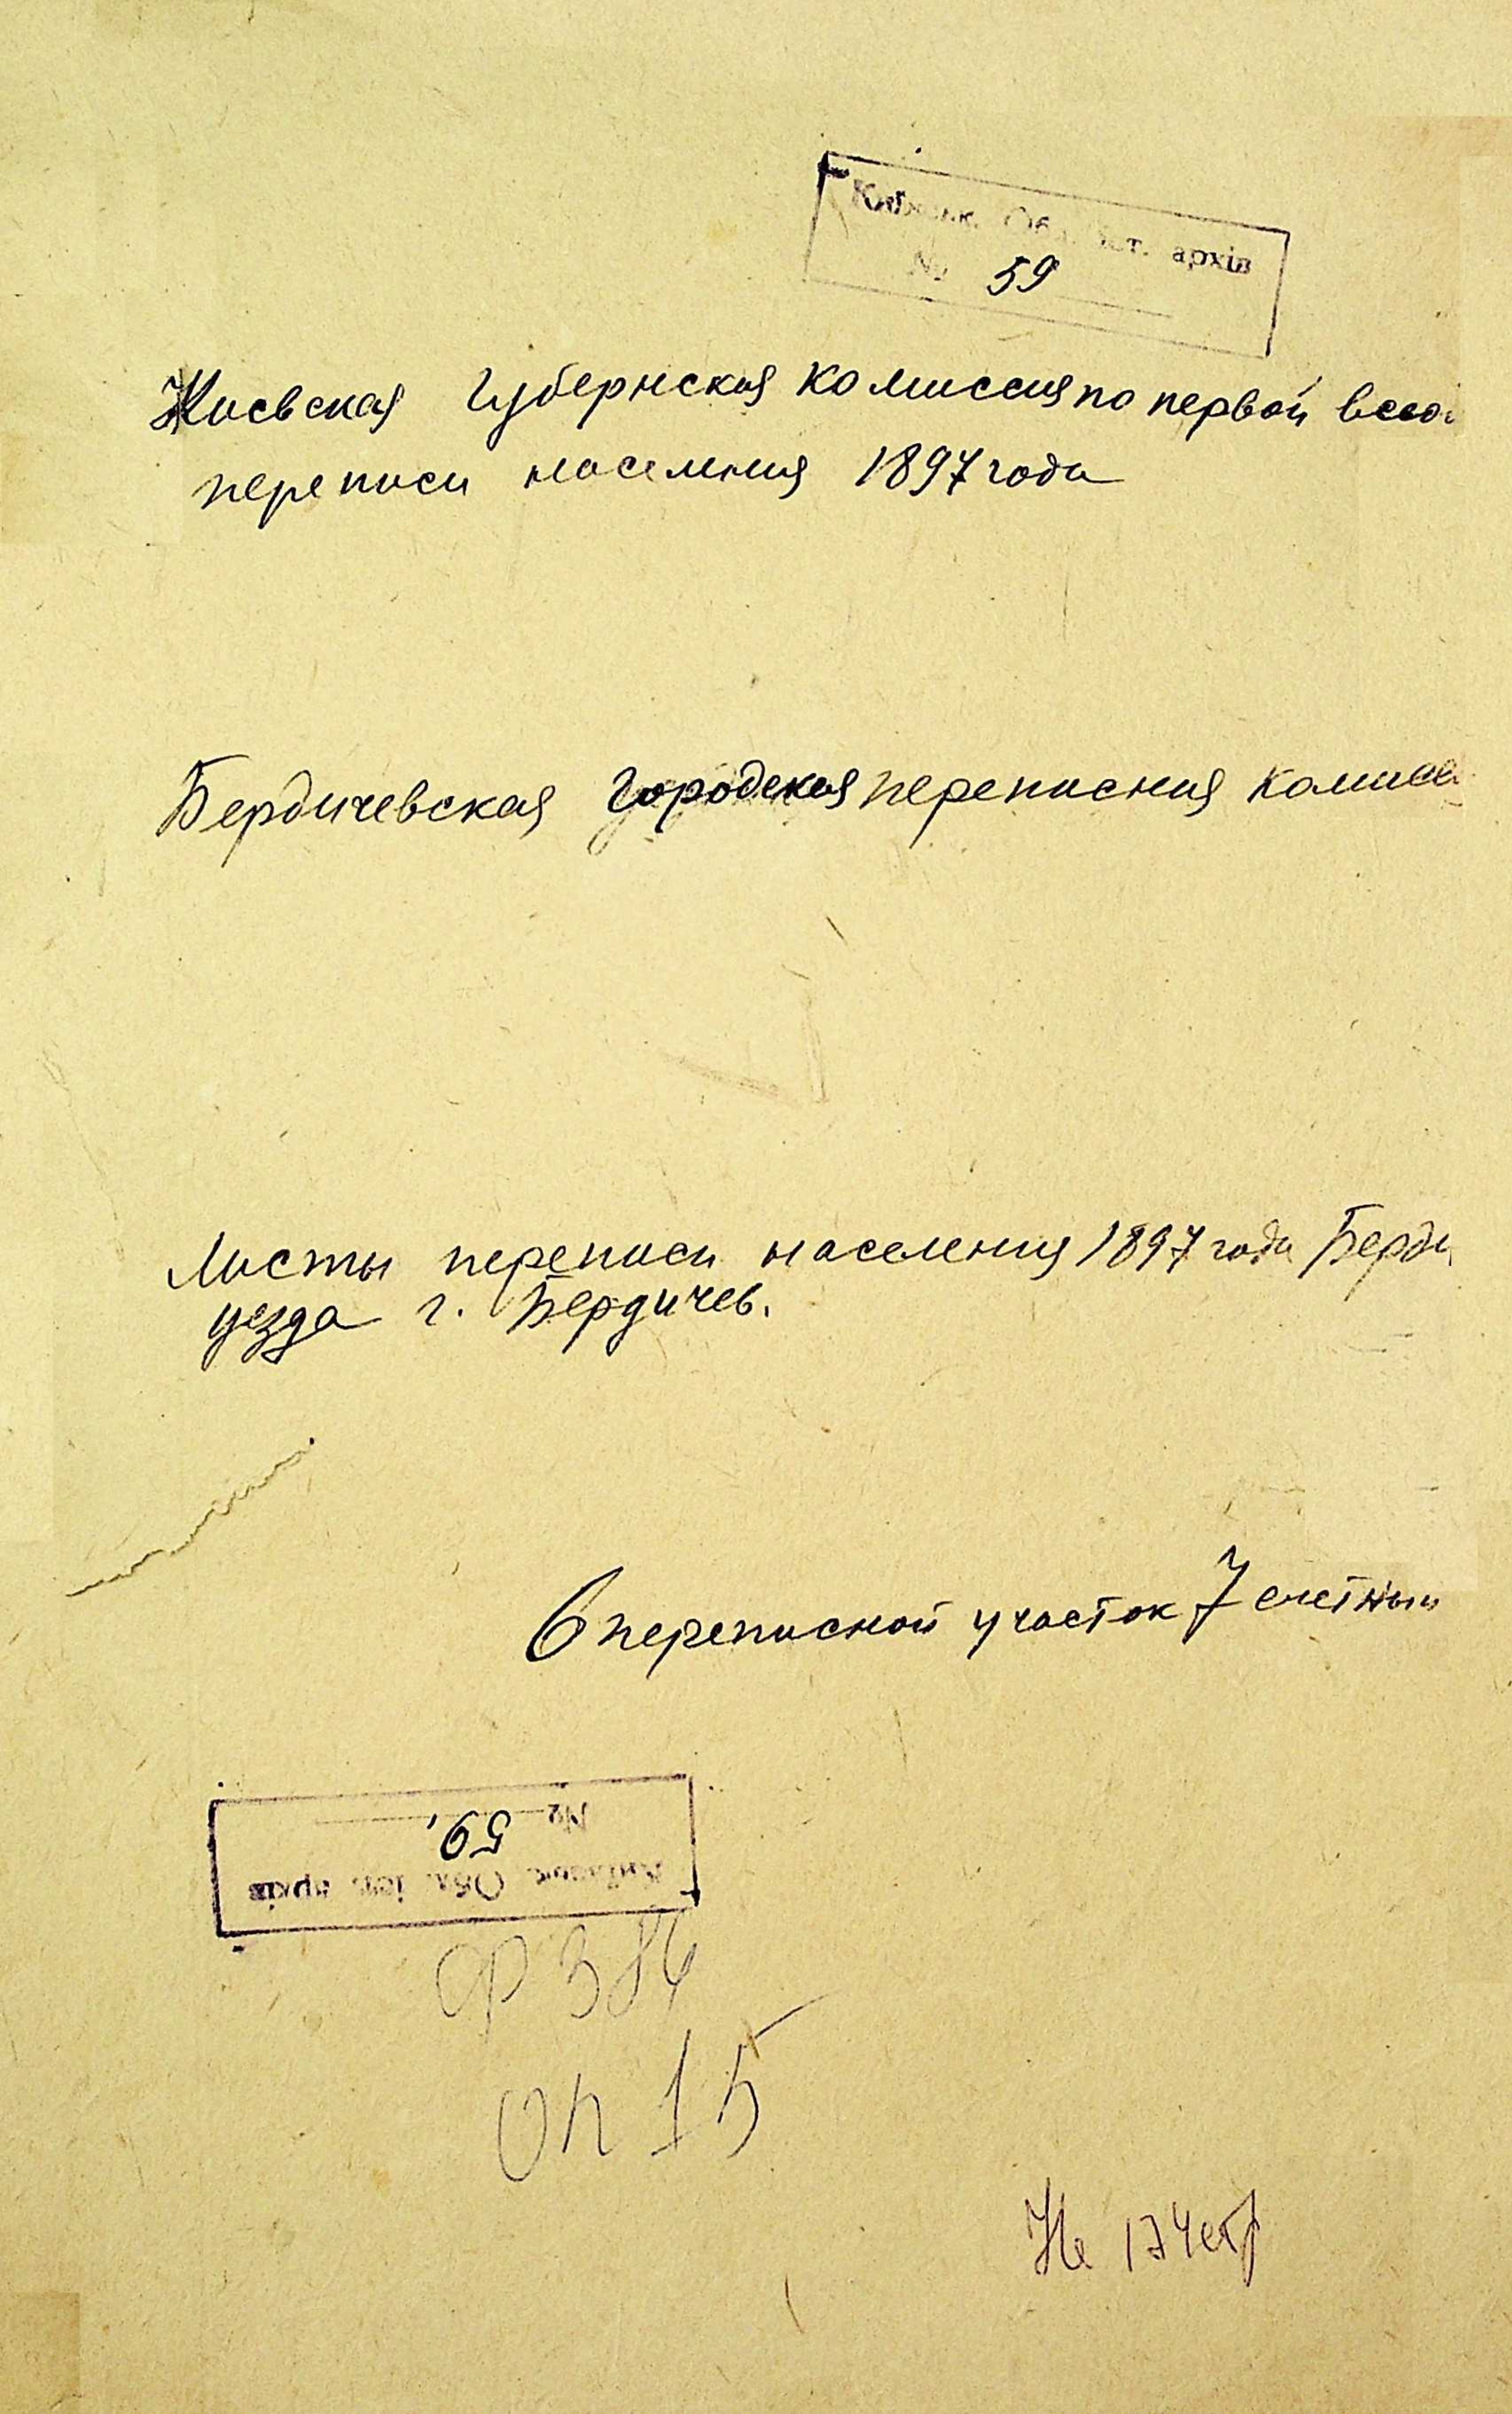 Київськ. Обл. Іст. архів
№ 59
Киевская Губернская комиссия по первой всео
переписи населения 1897 года
Бердичевская Городская переписная комисс
Листы переписи населения 1897 года Берди
уезда г. Бердичев.
6 переписной участок 7 счетный
Київськ. Обл. іст. архів
№ 59,
Ф 384
оп 15
На 174